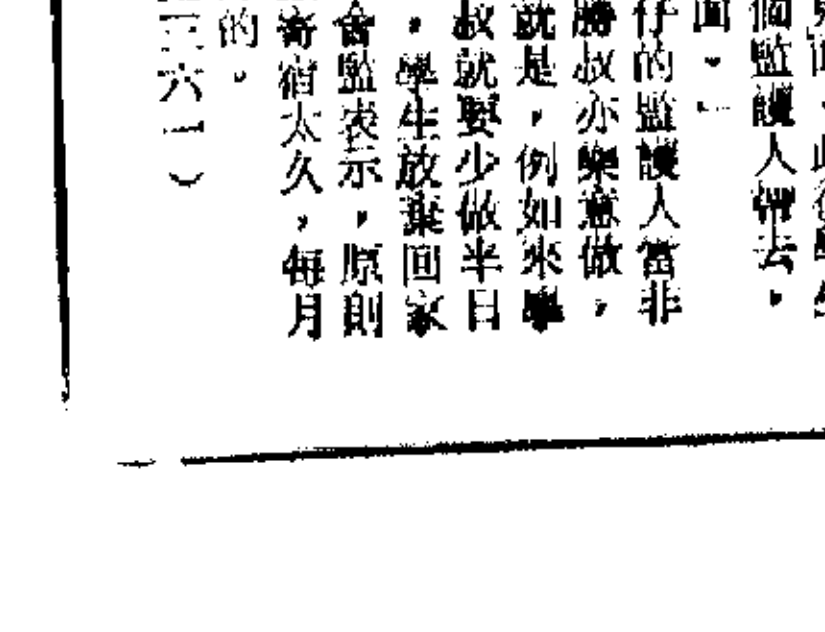 面。」
仔的監護人當非
勝叔亦樂意做，
就是，例如來學
叔就要少做半日
，學生放棄回家
會監表示，原則
寄宿太久，每月
的。
三六一）